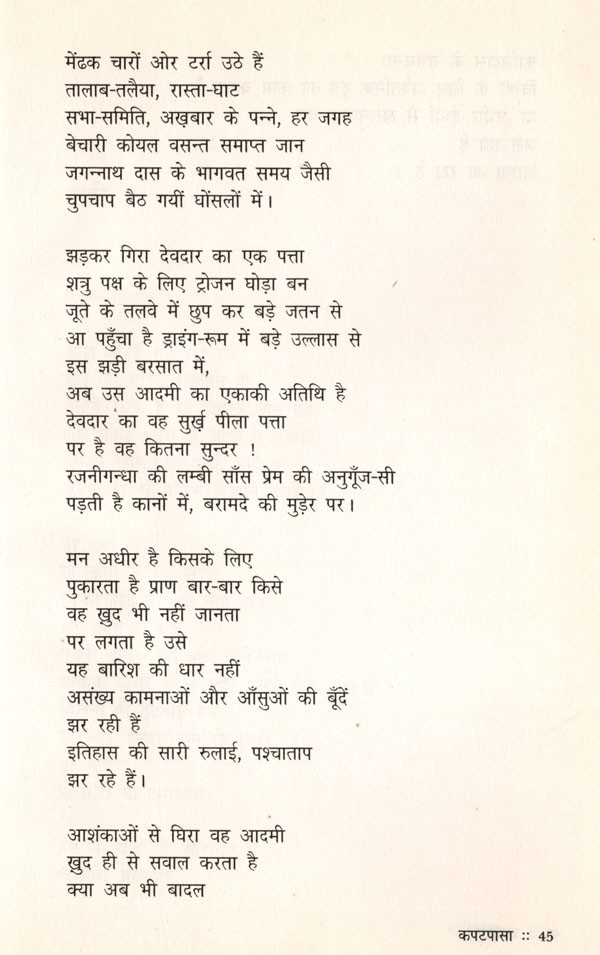 मेंढक चारों ओर टर्रा उठे हैं
तालाब-तलैया, रास्ता-घाट
सभा-समिति, अख़बार के पन्ने, हर जगह
बेचारी कोयल वसन्त समाप्त जान
जगन्नाथ दास के भागवत समय जैसी
चुपचाप बैठ गयीं घोंसलों में।
झड़कर गिरा देवदार का एक पत्ता
शत्रु पक्ष के लिए ट्रोजन घोड़ा बन
जूते के तलवे में छुप कर बड़े जतन से
आ पहुँचा है ड्राइंग-रूम में बड़े उल्लास से
इस झड़ी बरसात में,
अब उस आदमी का एकाकी अतिथि है
देवदार का वह सुर्ख़ पीला पत्ता
पर है वह कितना सुन्दर !
रजनीगन्धा की लम्बी साँस प्रेम की अनुगूँज-सी
पड़ती है कानों में, बरामदे की मुड़ेर पर।
मन अधीर है किसके लिए
पुकारता है प्राण बार-बार किसे
वह ख़ुद भी नहीं जानता
पर लगता है उसे
यह बारिश की धार नहीं
असंख्य कामनाओं और आँसुओं की बूँदें
झर रही हैं
इतिहास की सारी रुलाई, पश्चाताप
झर रहे हैं।
आशंकाओं से घिरा वह आदमी
ख़ुद ही से सवाल करता है
क्या अब भी बादल
कपटपासा :: 45